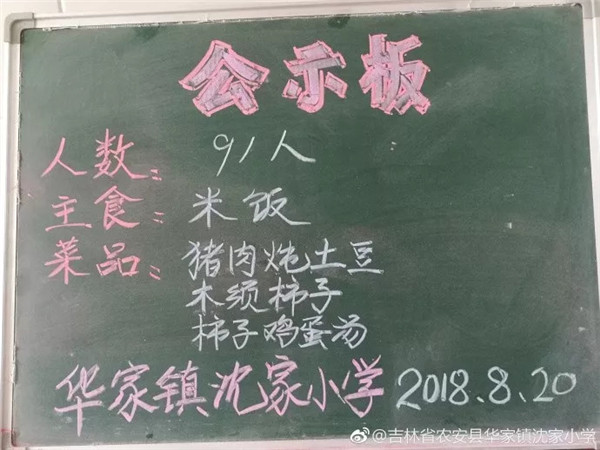 公示板
人数: 91人
主食: 米饭
菜品: 猪肉炖土豆
木须柿子
柿子鸡蛋汤
华家镇沈家小学 2018.8.20
@吉林省农安县华家镇沈家小学